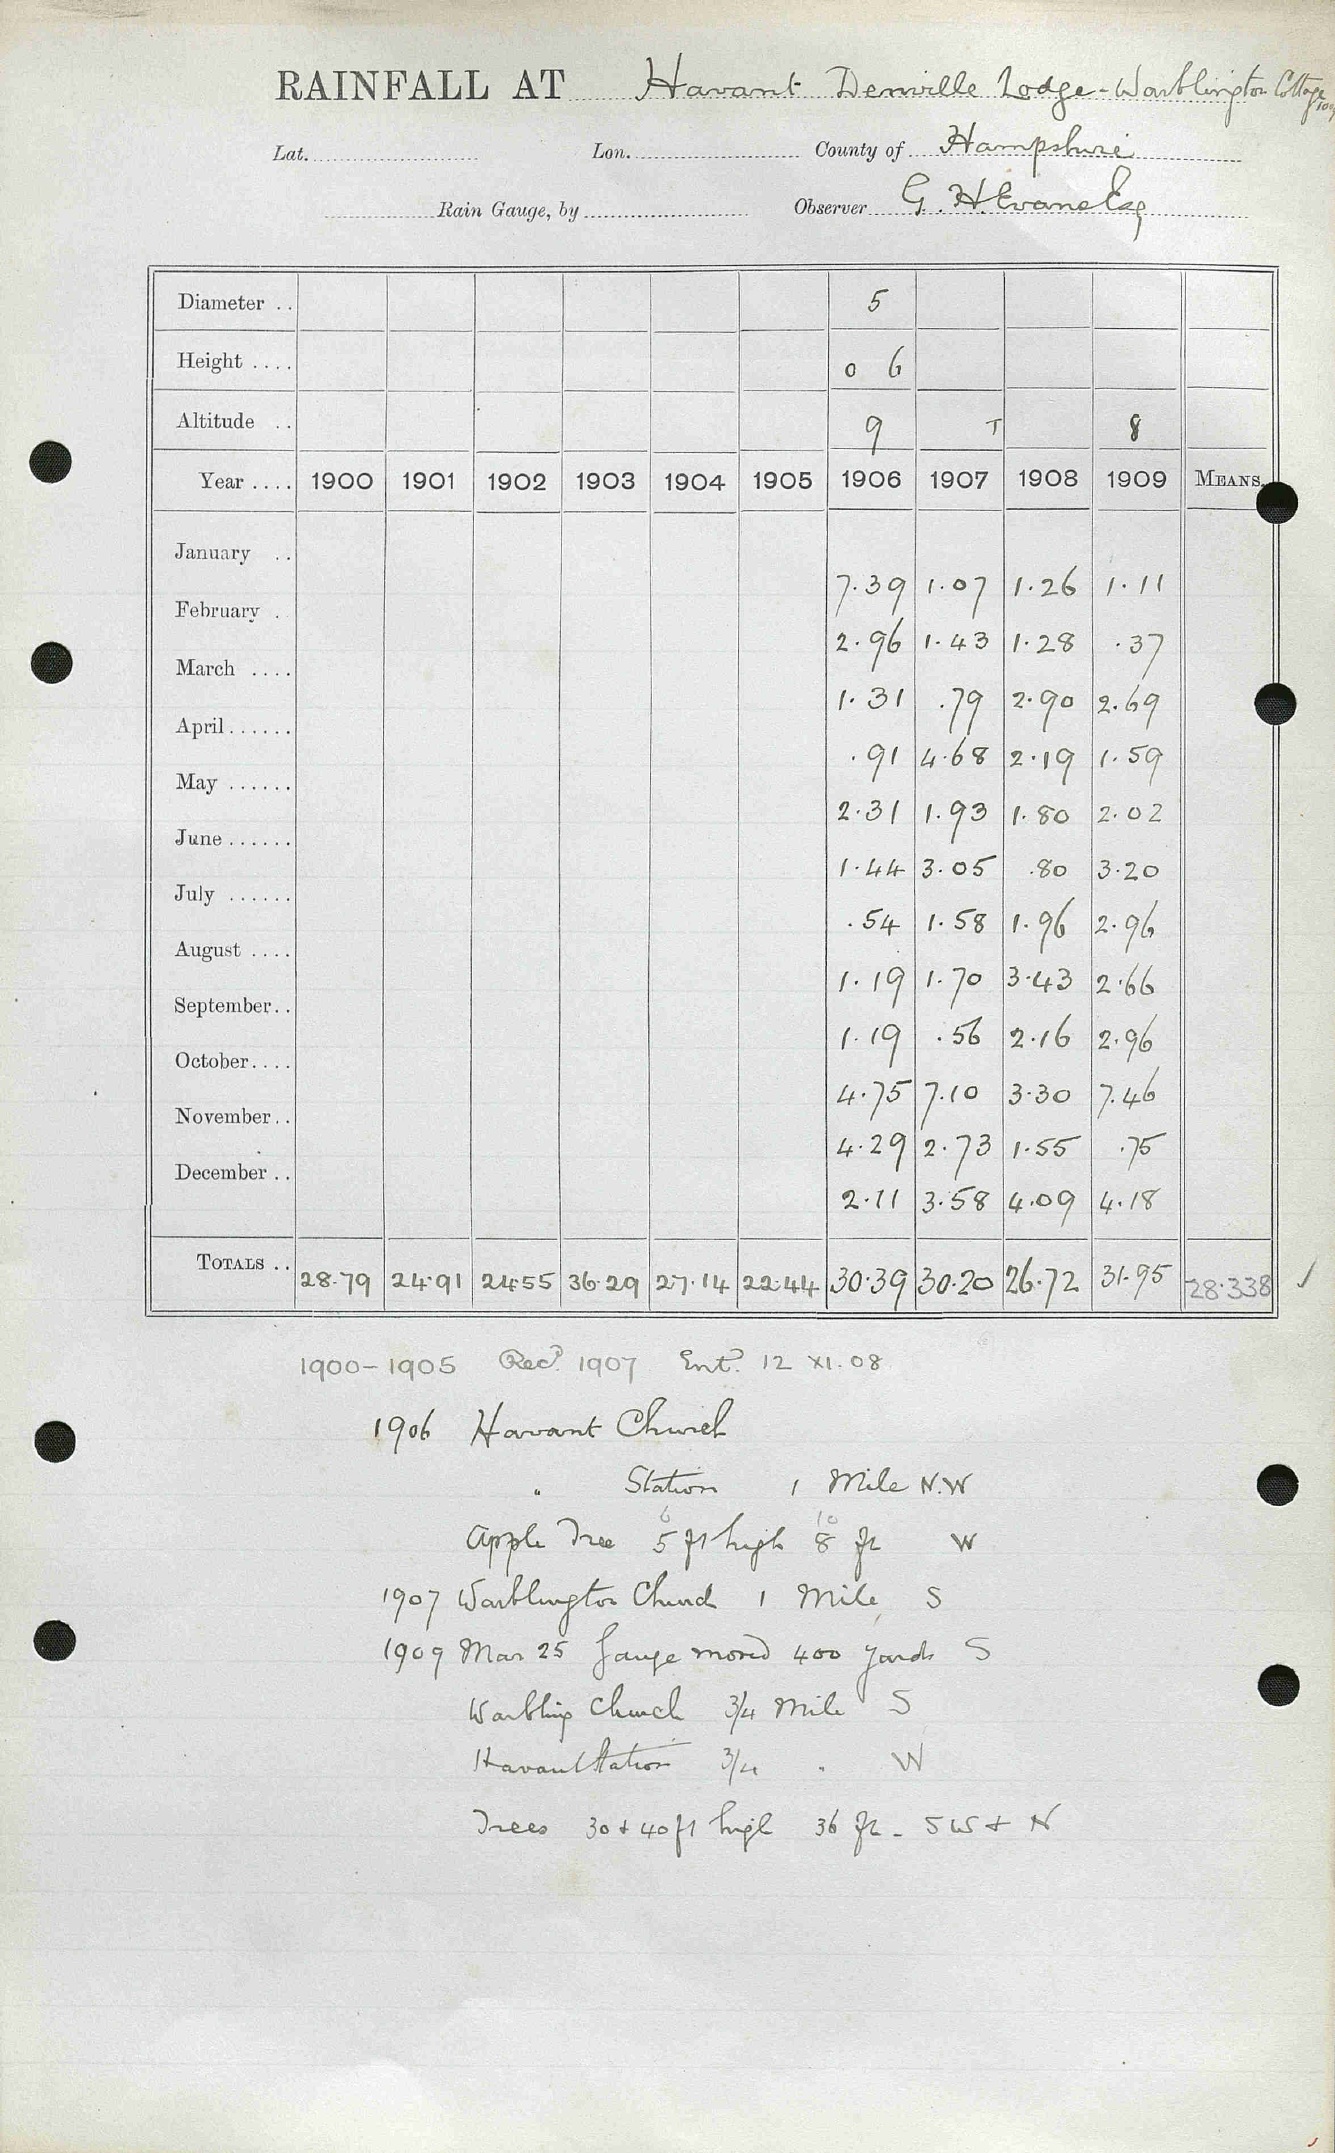 RAINFALL AT Havant Denville Lodge - Warblington Cottage
Lat. Lon. County of Hampshire
Rain Gauge, by Observer G. H. Evans Esq
Diameter .. 5
Height .... 0 6
Altitude .. 9 T 8
Year .... 1900 1901 1902 1903 1904 1905 1906 1907 1908 1909 MEANS.
January .. 7.39 1.07 1.26 1.11
February . 2.96 1.43 1.28 .37
March .... 1.31 .79 2.90 2.69
April...... .91 4.68 2.19 1.59
May ...... 2.31 1.93 1.80 2.02
June...... 1.44 3.05 .80 3.20
July ...... .54 1.58 1.96 2.96
August .... 1.19 1.70 3.43 2.66
September.. 1.19 .56 2.16 2.96
October.... 4.75 7.10 3.30 7.46
November.. 4.29 2.73 1.55 .75
December .. 2.11 3.58 4.09 4.18
TOTALS .. 28.79 24.91 24.55 36.29 27.14 22.44 30.39 30.20 26.72 31.95 28.338
1900-1905 Recd. 1907 Entd. 12 XI. 08
1906 Havant Church
" Station 1 Mile N.W
6 10
Apple Tree 5 ft high 8 ft W
1907 Warblington Church 1 Mile S
1909 Mar 25 Gauge moved 400 yards S
Warbling Church 3/4 Mile S
Havant Station 3/4 " W
Trees 30 + 40 ft high 36 ft - SW + N